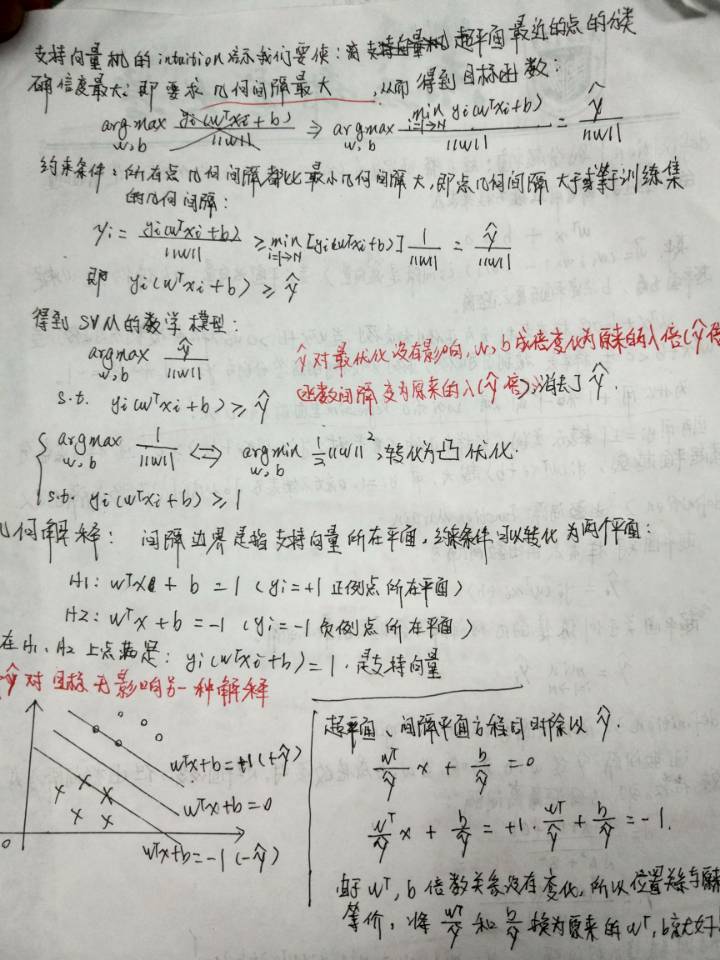 支持向量机的intuition启示我们要使：离超平面最近的点的分类
确信度最大；即要求几何间隔最大，从而得到目标函数：
argmax w,b yi(wᵀxi+b)/||w|| ⇒ argmax w,b min i=1→N yi(wᵀxi+b)/||w|| = γ̂/||w||
约束条件：所有点几何间隔都比最小几何间隔大，即点几何间隔大于或等于训练集
的几何间隔：
γi = yi(wᵀxi+b)/||w|| ≥ min i=1→N [yi(wᵀxi+b)] 1/||w|| = γ̂/||w||
即 yi(wᵀxi+b) ≥ γ̂
得到SVM的数学模型：
argmax w,b γ̂/||w||
s.t. yi(wᵀxi+b) ≥ γ̂
γ̂对最优化没有影响，w,b成倍变化为原来的λ倍(γ̂倍
函数间隔变为原来的λ(γ̂倍)，消去了γ̂.
argmax w,b 1/||w|| ⇔ argmin w,b 1/2||w||², 转化为凸优化.
s.t. yi(wᵀxi+b) ≥ 1
几何解释：间隔边界是指支持向量所在平面，约束条件可以转化为两个平面：
H1: wᵀx + b = 1 (yi=+1 正例点所在平面)
H2: wᵀx + b = -1 (yi=-1 负例点所在平面)
在H1、H2上点满足：yi(wᵀxi+b)=1. 是支持向量
γ̂对目标无影响另一种解释
wᵀx+b=+1(+γ̂)
wᵀx+b=0
wᵀx+b=-1(-γ̂)
0
超平面、间隔平面方程同时除以γ̂.
wᵀ/γ̂ x + b/γ̂ = 0
wᵀ/γ̂ x + b/γ̂ = +1. wᵀ/γ̂ + b/γ̂ = -1.
由于wᵀ,b倍数关系没有变化，所以位置关系与原来
等价，将 wᵀ/γ̂ 和 b/γ̂ 换为原来的wᵀ,b就好